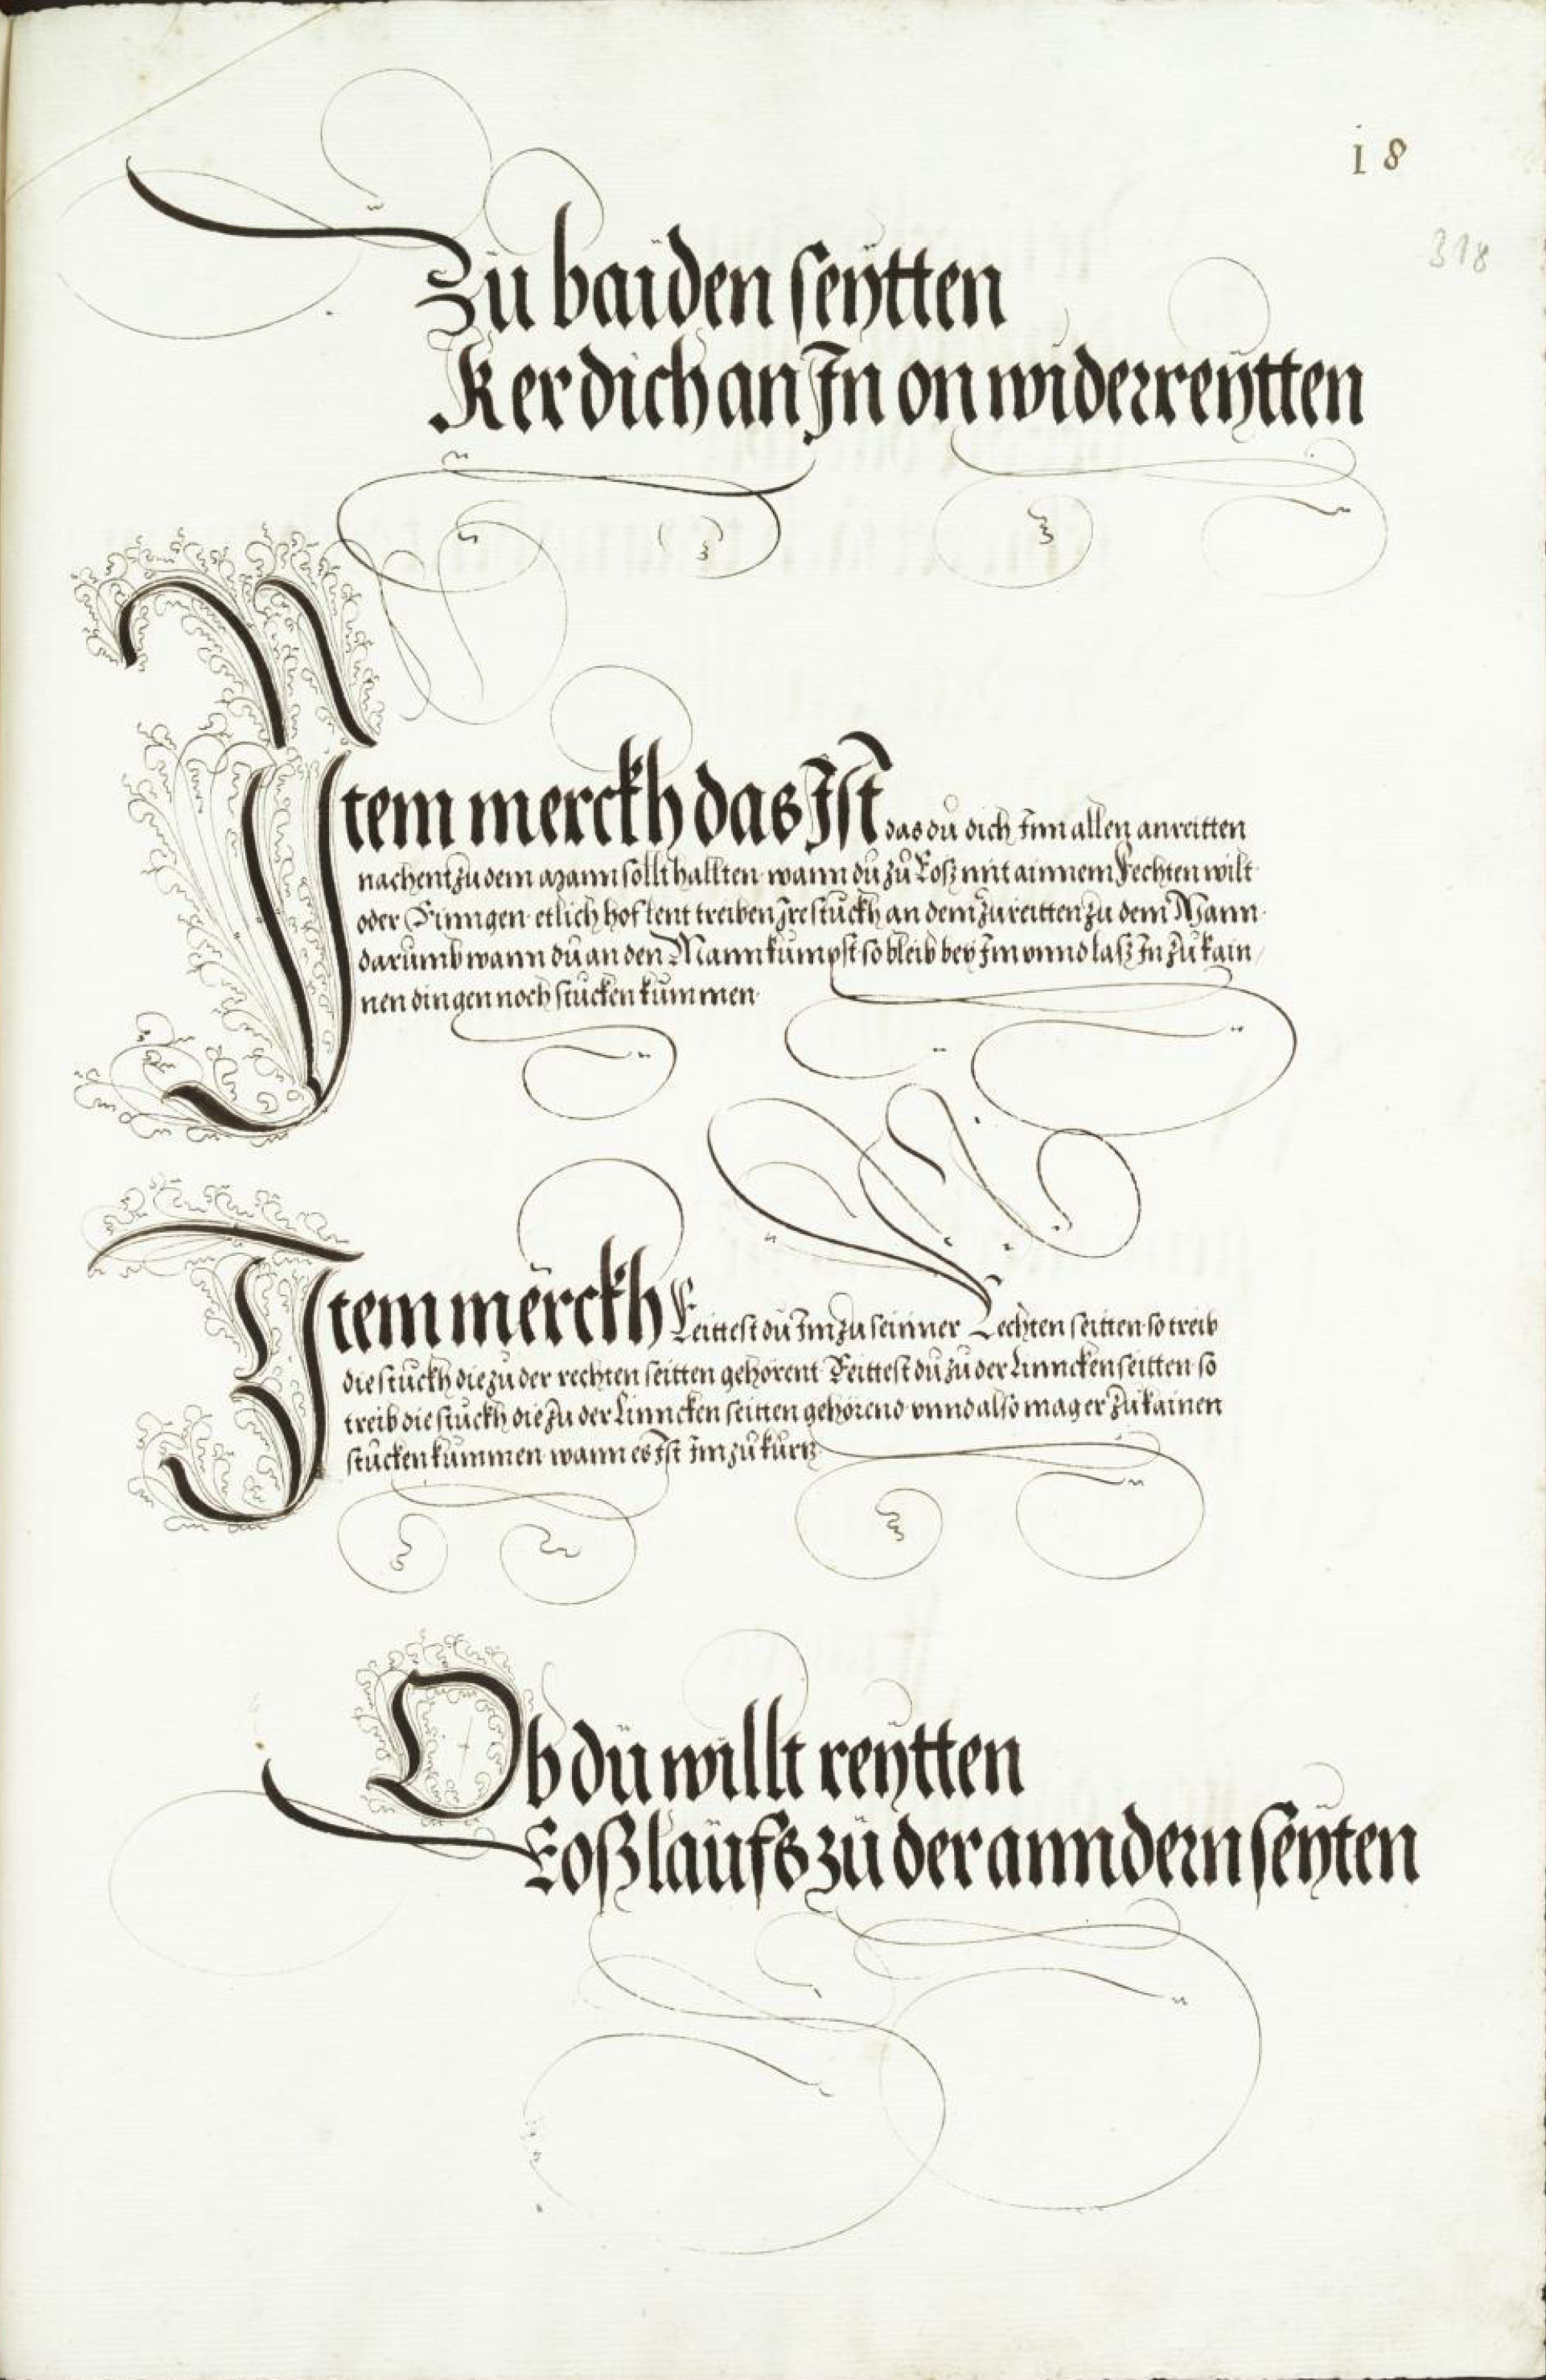 18
318
Zu baiden seÿtten
Ker dich an In on widerreÿtten
Item merckh das Ist das du dich Inn allen anreitten
nachent zu dem mann sollt hallten wann du zu Roß mit ainnem Fechten wilt
oder Ringen etlich hoflent treiben Ire stuckh an dem zureitten zu dem Mann
darumb wann du an den Mann kumpst so bleib bey Im vnnd laß In zu kain
nen dingen noch stucken kummen
Item merckh Reittest du Im zu seinner Rechten seitten so treib
die stuckh die zu der rechten seitten gehorent Reittest du zu der Linncken seitten so
treib die stuckh die zu der Linncken seitten gehörend vnnd also mag er zu kainen
stucken kummen wann es Ist Im zu kurtz
Ob du willt reÿtten
Roßlaufs zu der anndern seÿten